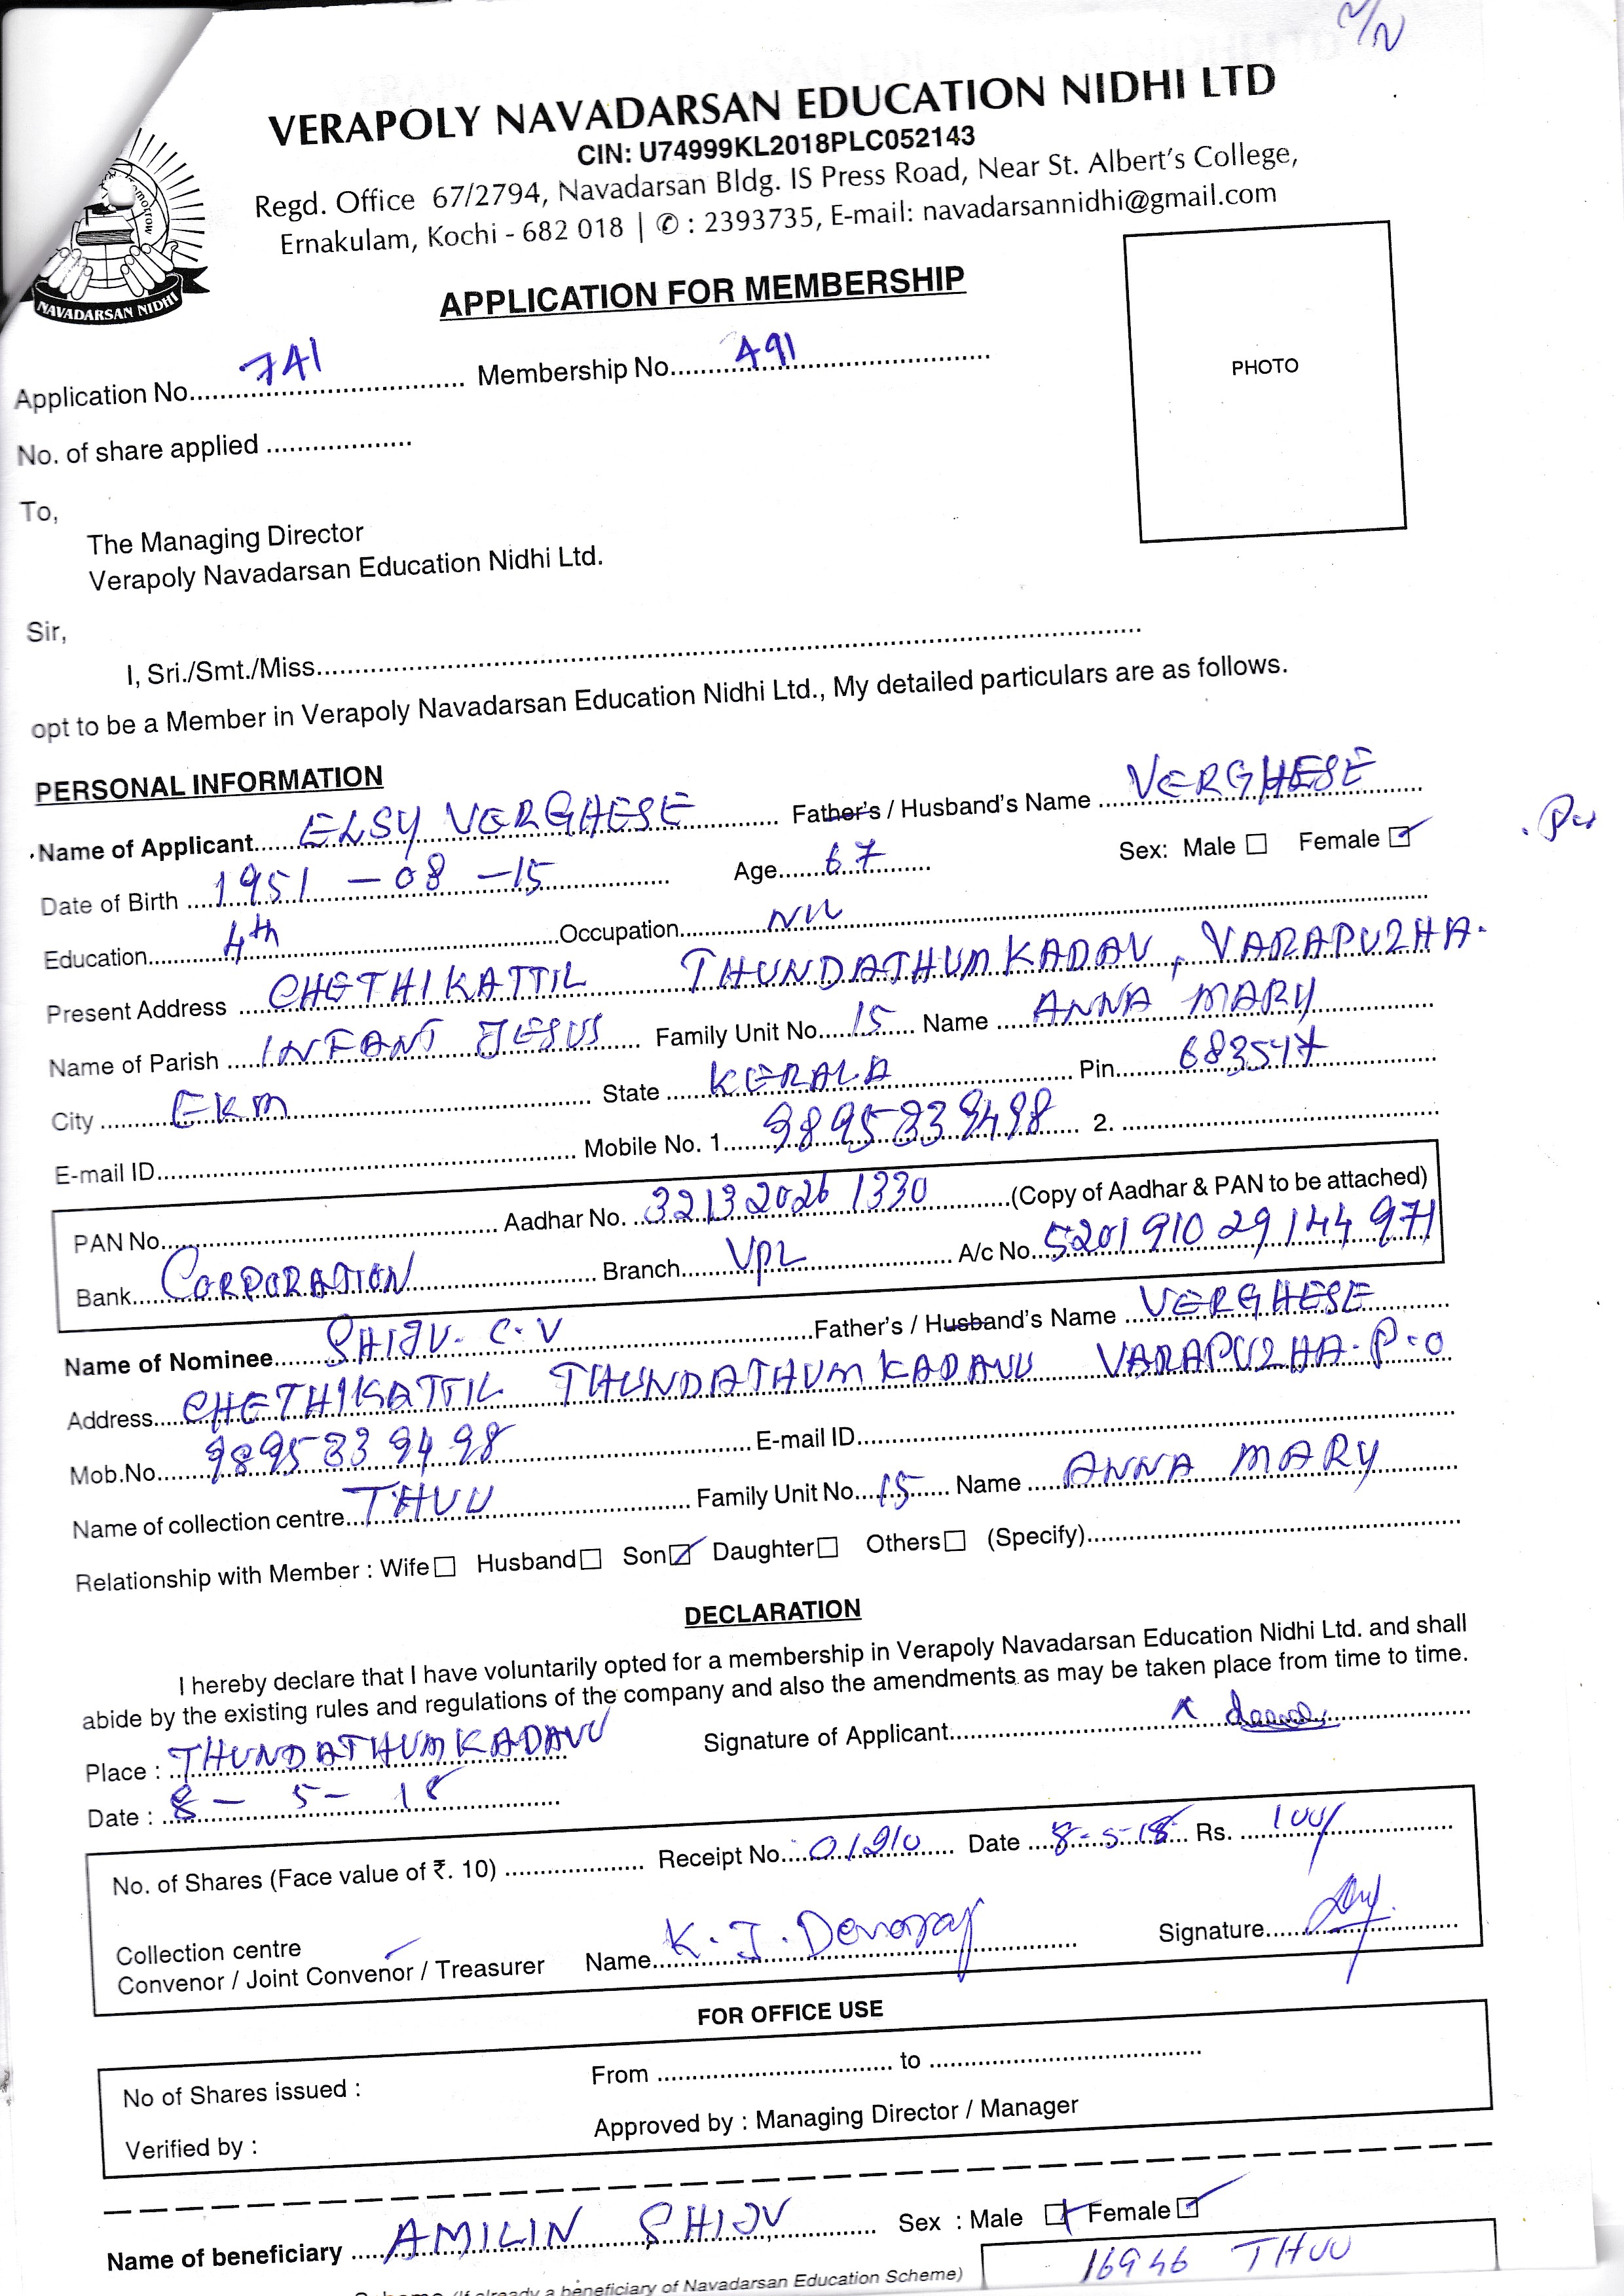 VERAPOLY NAVADARSAN EDUCATION NIDHI LTD
CIN: U74999KL2018PLC052143
Regd. Office 67/2794, Navadarsan Bldg. IS Press Road, Near St. Albert's College,
Ernakulam, Kochi - 682 018 | ✆ : 2393735, E-mail: navadarsannidhi@gmail.com
NAVADARSAN NIDHI
APPLICATION FOR MEMBERSHIP
PHOTO
Application No. 741 Membership No. 491
No. of share applied
To,
The Managing Director
Verapoly Navadarsan Education Nidhi Ltd.
Sir,
I, Sri./Smt./Miss.
opt to be a Member in Verapoly Navadarsan Education Nidhi Ltd., My detailed particulars are as follows.
PERSONAL INFORMATION
Name of Applicant ELSY VERGHESE Father's / Husband's Name VERGHESE
Date of Birth 1951 - 08 - 15 Age 67 Sex: Male ☐ Female ☑
Education 4th Occupation NIL
Present Address CHETHIKATTIL THUNDATHUMKADAV, VARAPUZHA.
Name of Parish INFANT JESUS Family Unit No. 15 Name ANNA MARY
City EKM State KERALA Pin 683517
E-mail ID Mobile No. 1. 9895839498 2.
PAN No. Aadhar No. 321320261330 (Copy of Aadhar & PAN to be attached)
Bank CORPORATION Branch VPL A/c No. 520191029144971
Name of Nominee SHIJU. C.V Father's / Husband's Name VERGHESE
Address CHETHIKATTIL THUNDATHUMKADAVU VARAPUZHA. P.O
Mob.No. 9895839498 E-mail ID
Name of collection centre THUU Family Unit No. 15 Name ANNA MARY
Relationship with Member : Wife ☐ Husband ☐ Son ☑ Daughter ☐ Others ☐ (Specify)
DECLARATION
I hereby declare that I have voluntarily opted for a membership in Verapoly Navadarsan Education Nidhi Ltd. and shall
abide by the existing rules and regulations of the company and also the amendments as may be taken place from time to time.
Place : THUNDATHUMKADAVU Signature of Applicant
Date : 8 - 5 - 18
No. of Shares (Face value of ₹. 10) Receipt No. 01910 Date 8-5-18 Rs. 100/
Collection centre
Convenor / Joint Convenor / Treasurer Name K. J. Devaraj Signature
FOR OFFICE USE
No of Shares issued : From to
Verified by : Approved by : Managing Director / Manager
Name of beneficiary AMILIN SHIJU Sex : Male ☐ Female ☑
16946 THUU
(If already a beneficiary of Navadarsan Education Scheme)